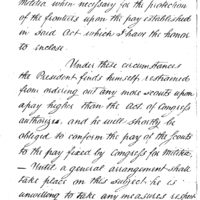 Militia when necessary for the protection
of the frontiers upon the pay established
in said Act which I have the honor
to enclose.
Under these circumstances
the President finds himself restrained
from ordering out any more scouts upon
a pay higher than the Act of Congress
authorizes, and he will shortly be
obliged to conform the pay of the scouts
to the pay fixed by Congress for Militia.
— Until a general arrangement shall
take place on this subject he is
unwilling to take any measures respect